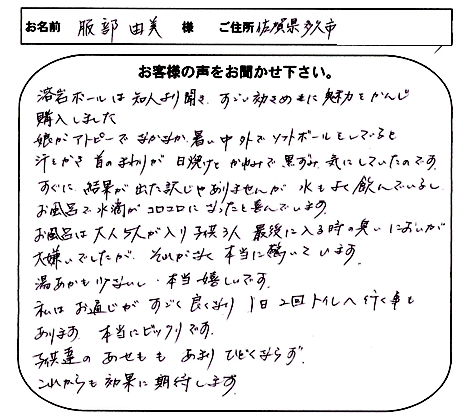 お名前 服部 由美 様 ご住所 佐賀県多久市
お客様の声をお聞かせ下さい。
溶岩ボールは知人より聞き、すごい効きめに魅力をかんじ
購入しました
娘がアトピーでなかなか、暑い中外でソフトボールをしていると
汗をかき首のまわりが日焼けとかゆみで黒ずみ気にしていたのです。
すぐに結果が出た訳じゃありませんが水もよく飲んでいるし
お風呂で水滴がコロコロになったと喜んでいます。
お風呂は大人5人が入り子供3人最後に入る時の臭いにおいが
大嫌いでしたが、それがなく本当に驚いています。
湯あかも少ないし、本当嬉しいです。
私はお通じがすごく良くなり1日2回トイレへ行く事も
あります。本当にビックリです。
子供達のあせももあまりひどくならず。
これからも効果に期待します。